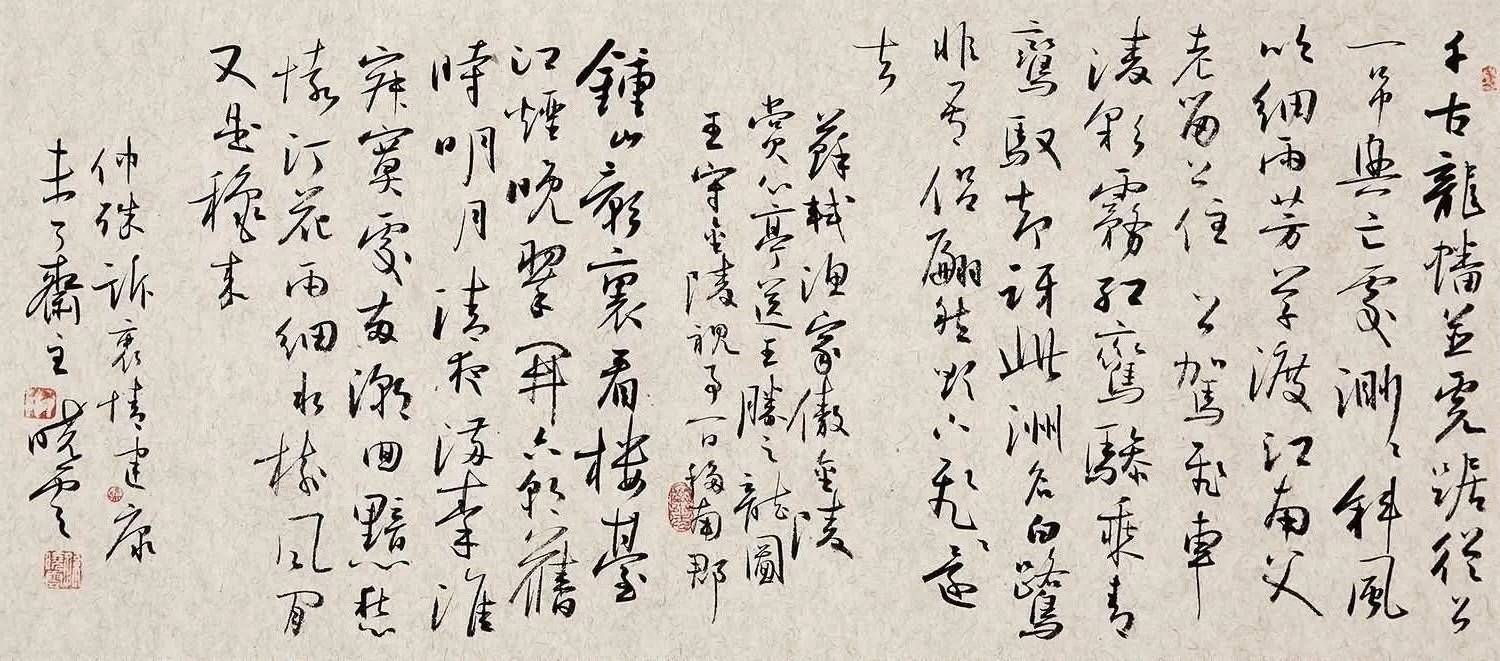 千古龍蟠並虎踞從公
一吊興亡處渺渺斜風
吹細雨芳草渡江南父
老留公住 公駕飛車
凌彩霧紅鸞驂乘青
鸞馭却訝此洲名白鷺
非吾侶翩然欲下飛還
去
蘇軾漁家傲金陵
賞心亭送王勝之龍圖
王守金陵視事一日移南郡
鍾山影裏看楼臺
江煙晚翠開六朝舊
時明月清夜滿秦淮
寂寞處兩潮回黯愁
懷汀花雨細水樹風閒
又是穐来
仲殊訴衷情建康
未了齋主曉雲